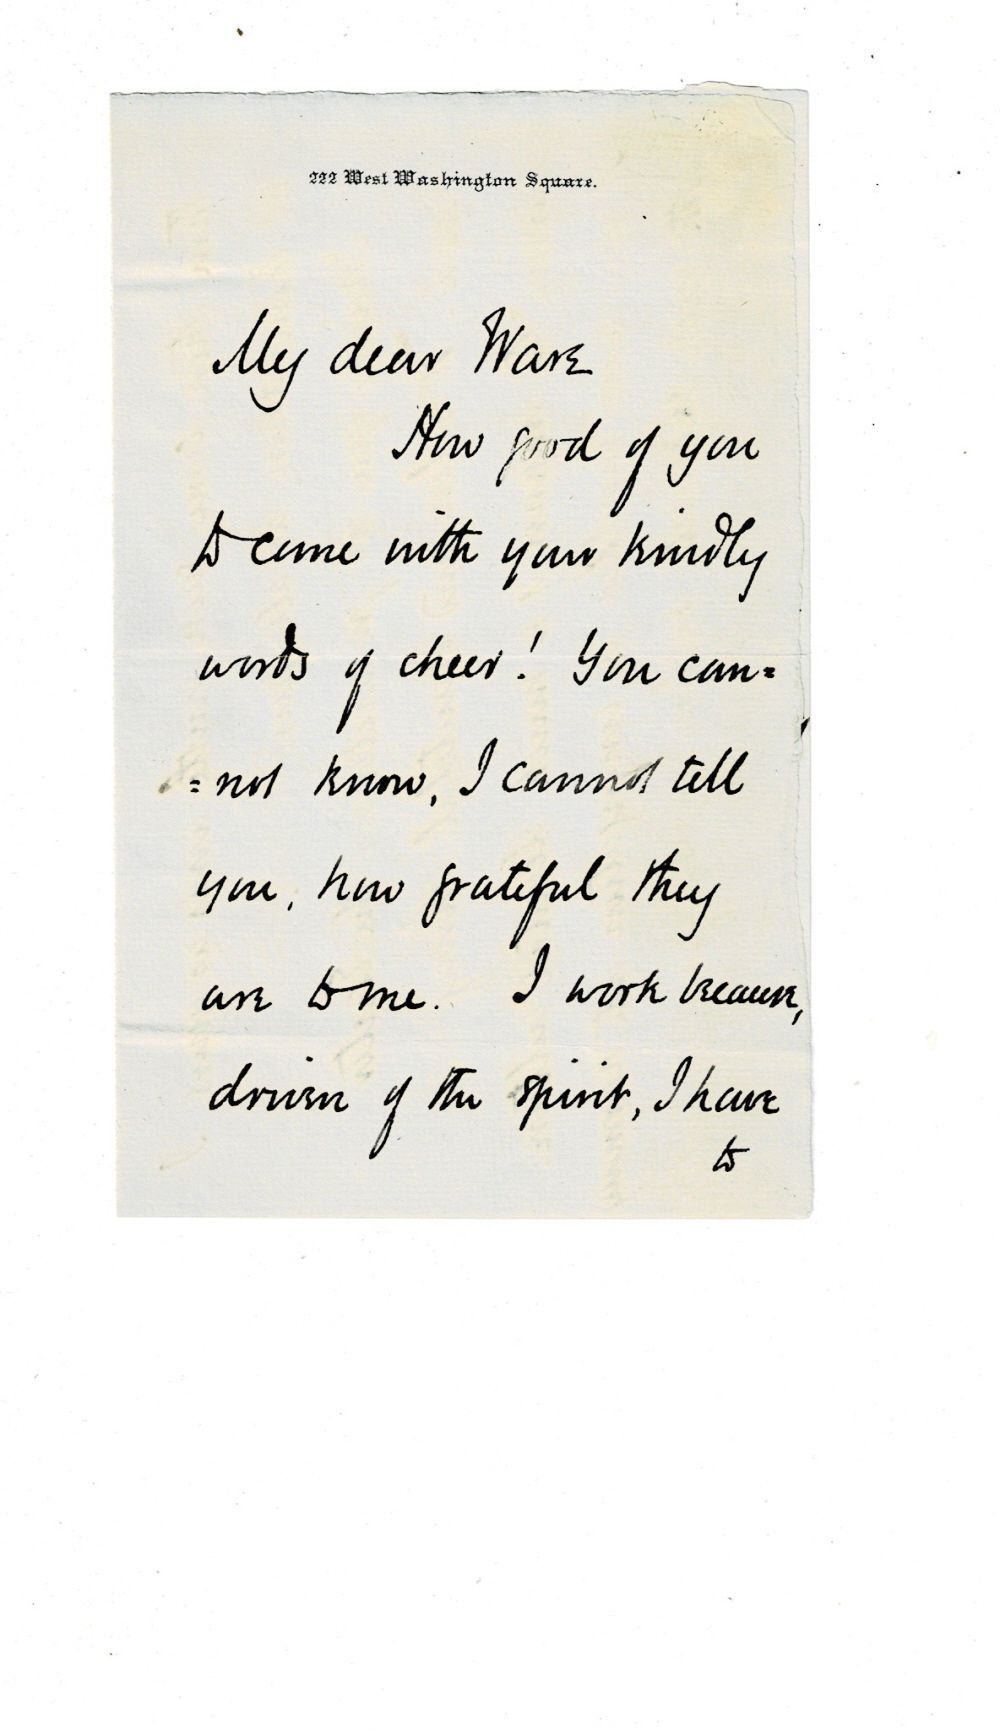 222 West Washington Square.
My dear Ware
How good of you
to come with your kindly
words of cheer! You can=
=not know, I cannot tell
you, how grateful they
are to me. I work because,
driven of the spirit, I have
to